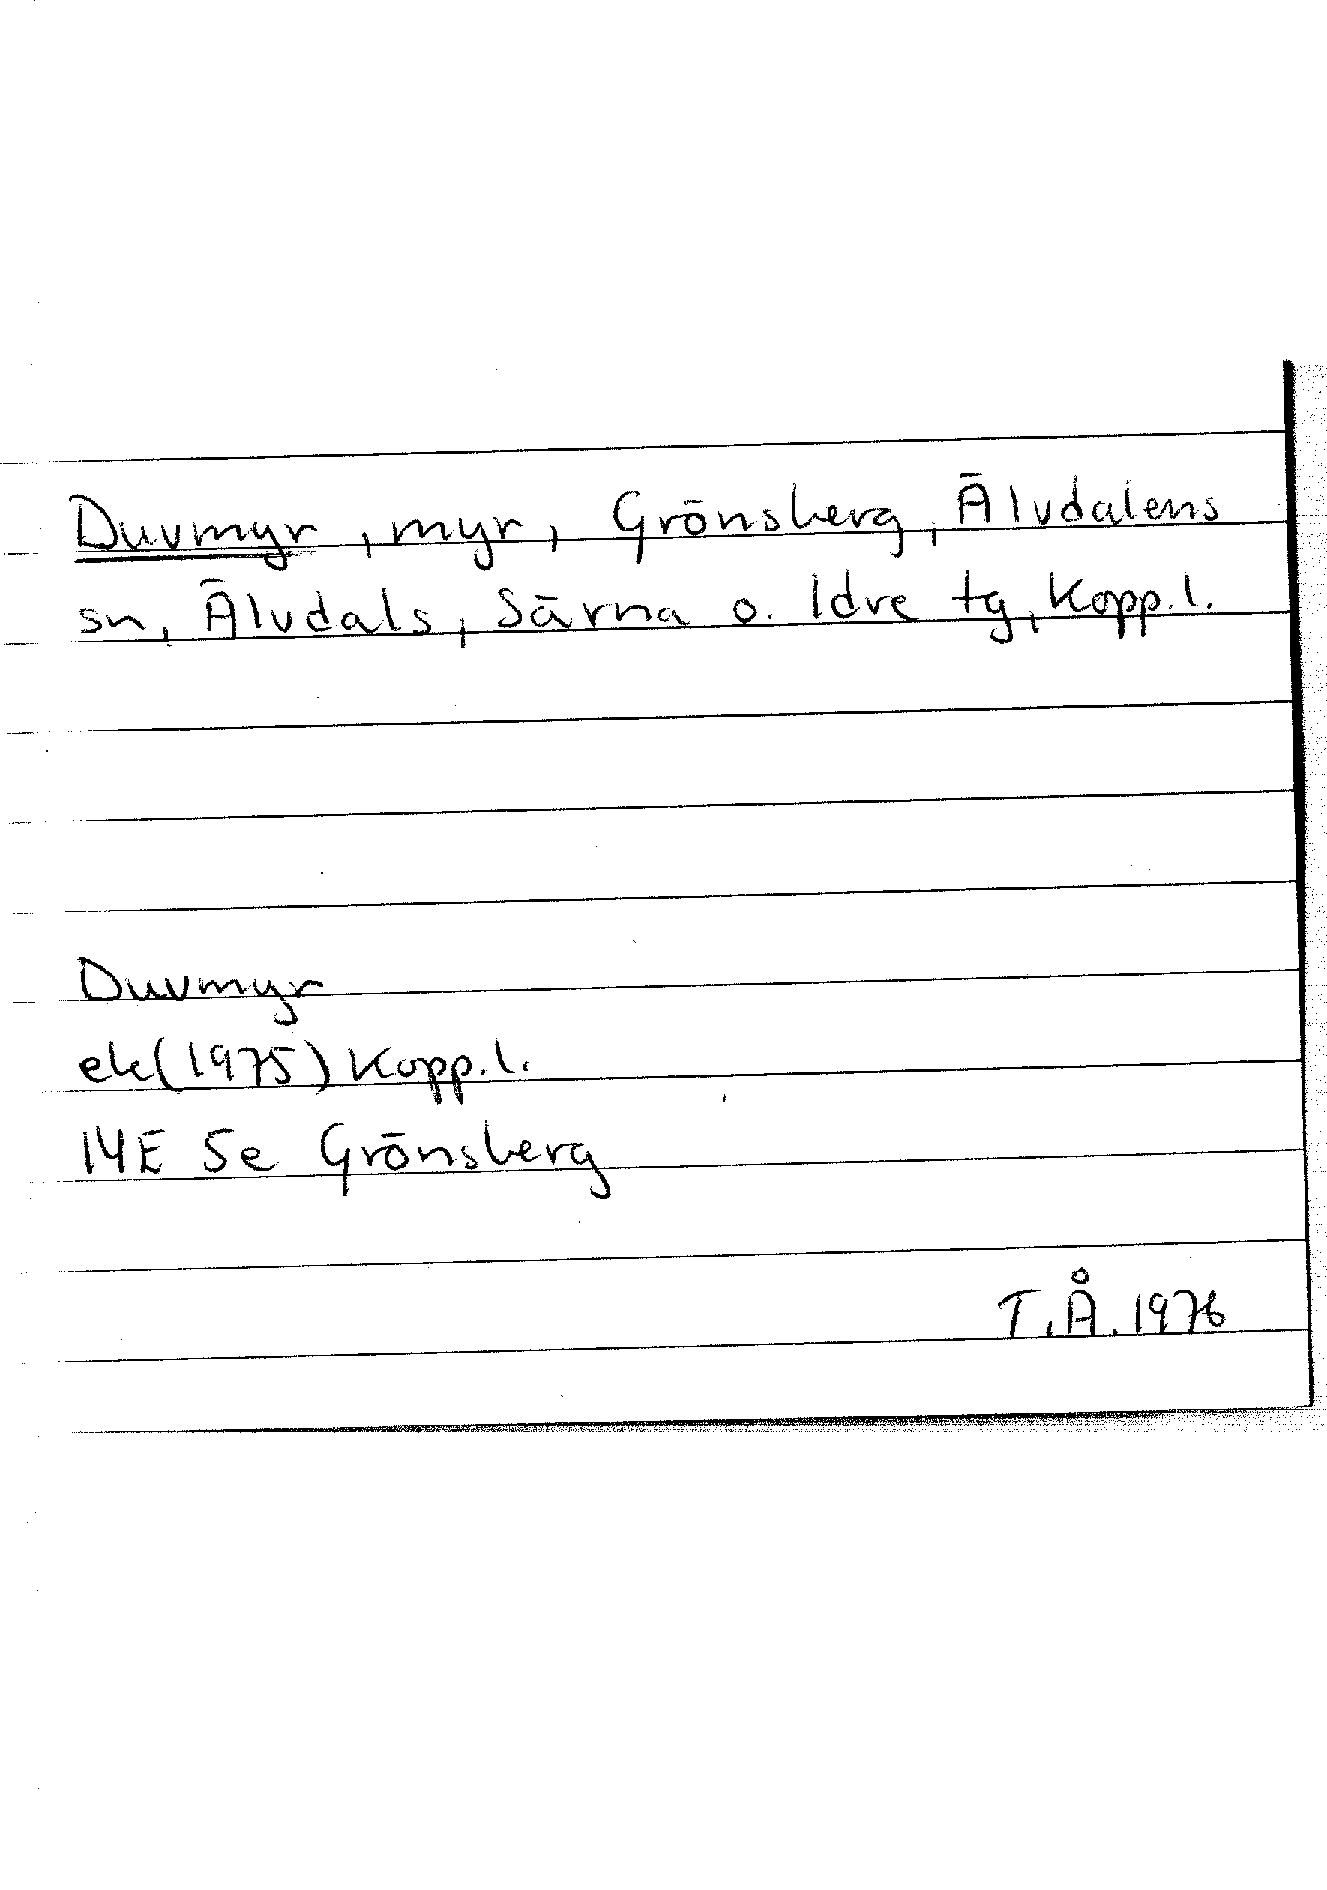 Duvmyr, myr, Grönsberg, Älvdalens
sn, Älvdals, Särna o. Idre tg, Kopp.l.
Duvmyr
ek(1975) Kopp.l.
14E 5e Grönsberg
T.Å. 1976